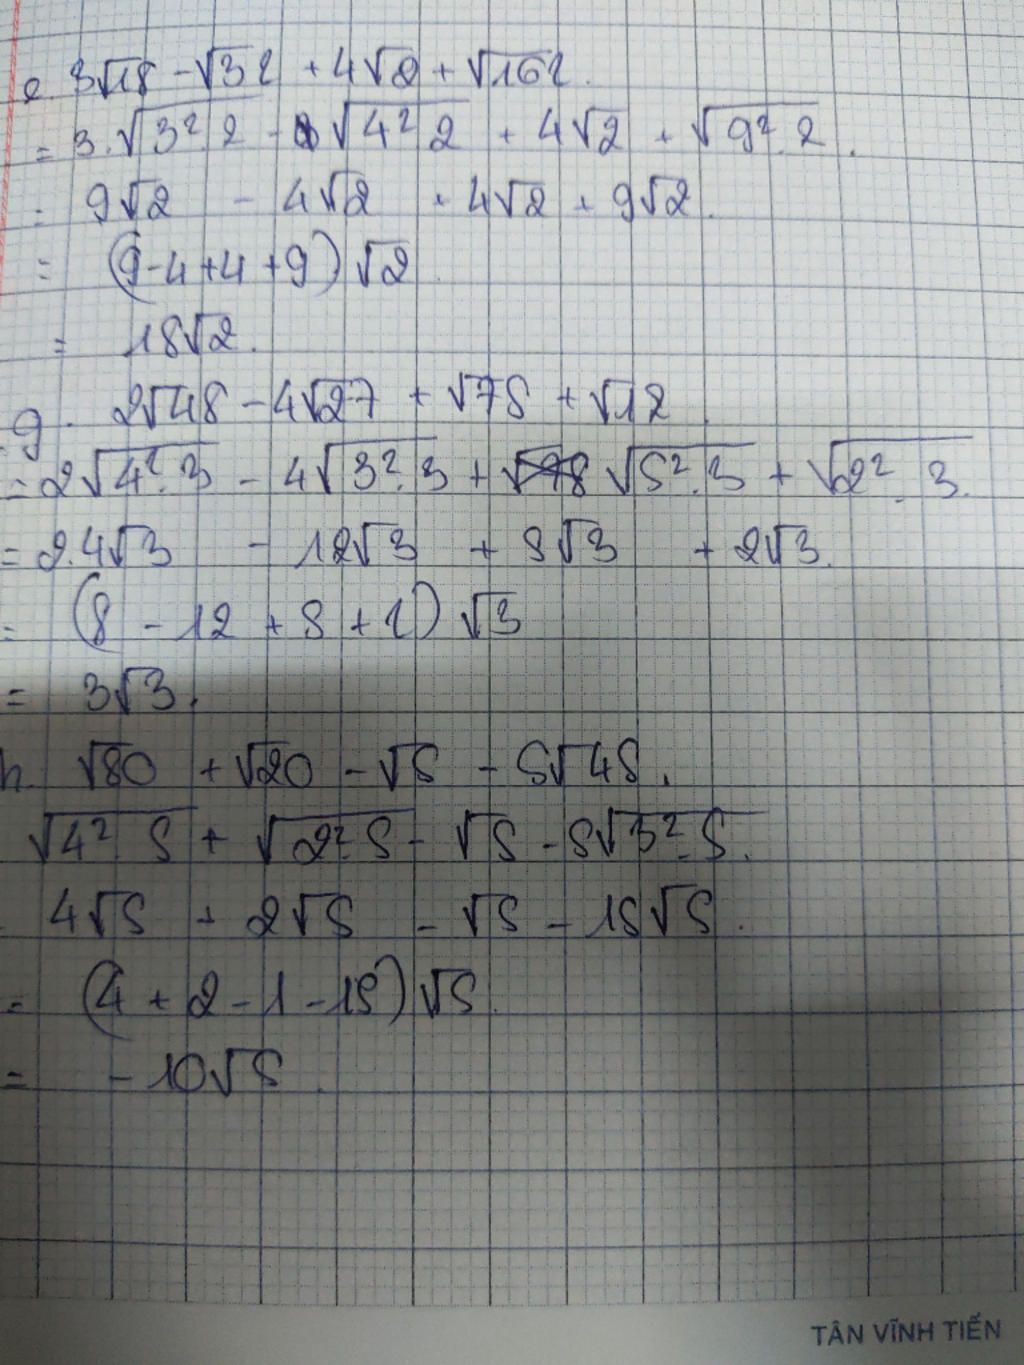 e. 3√18 - √32 + 4√2 + √162.
= 3.√3².2 - √4² 2 + 4√2 + √9².2.
= 9√2 - 4√2 + 4√2 + 9√2.
= (9-4+4+9)√2.
= 18√2.
g. 2√48 - 4√27 + √75 + √12.
= 2√4².3 - 4√3².3 + √5².3 + √2².3.
= 2.4√3 - 12√3 + 5√3 + 2√3.
= (8 - 12 + 5 + 2)√3
= 3√3.
h. √80 + √20 - √5 - 5√45.
√4².5 + √2².5 - √5 - 5√3².5.
4√5 + 2√5 - √5 - 15√5.
= (4 + 2 - 1 - 15)√5.
= -10√5.
TÂN VĨNH TIẾN